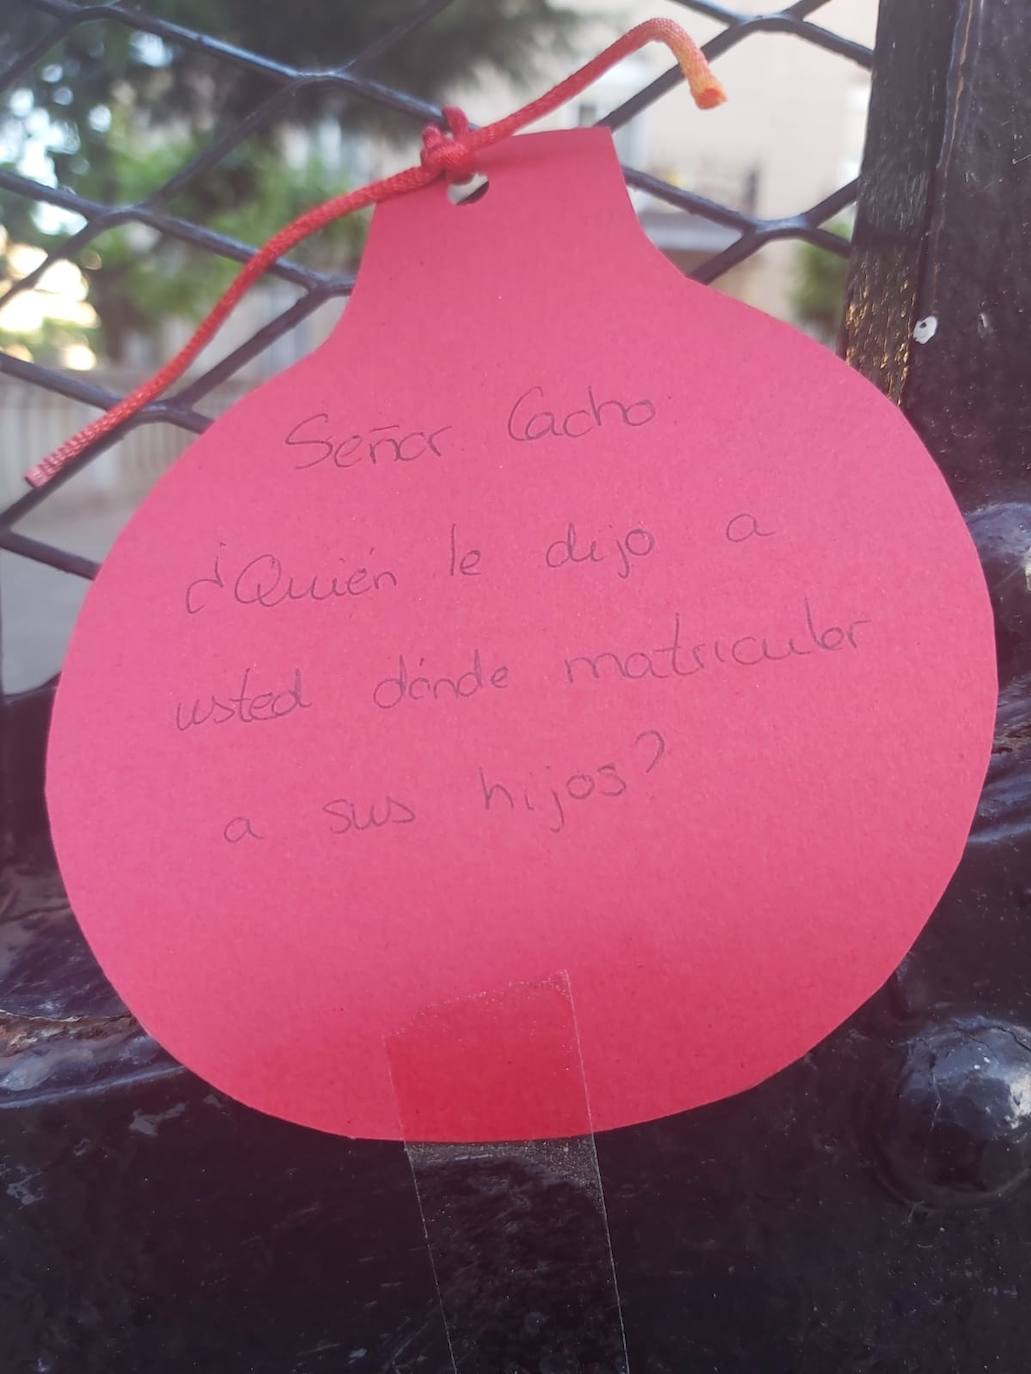 Señor Cacho
¿Quién le dijo a
usted dónde matricular
a sus hijos?